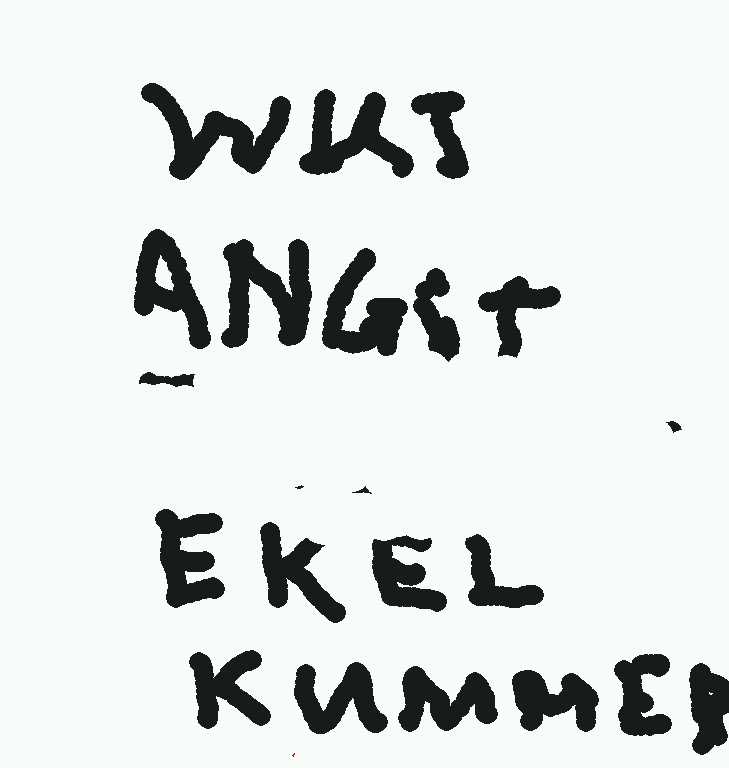 WUT
ANGSt
EKEL
KUMMER